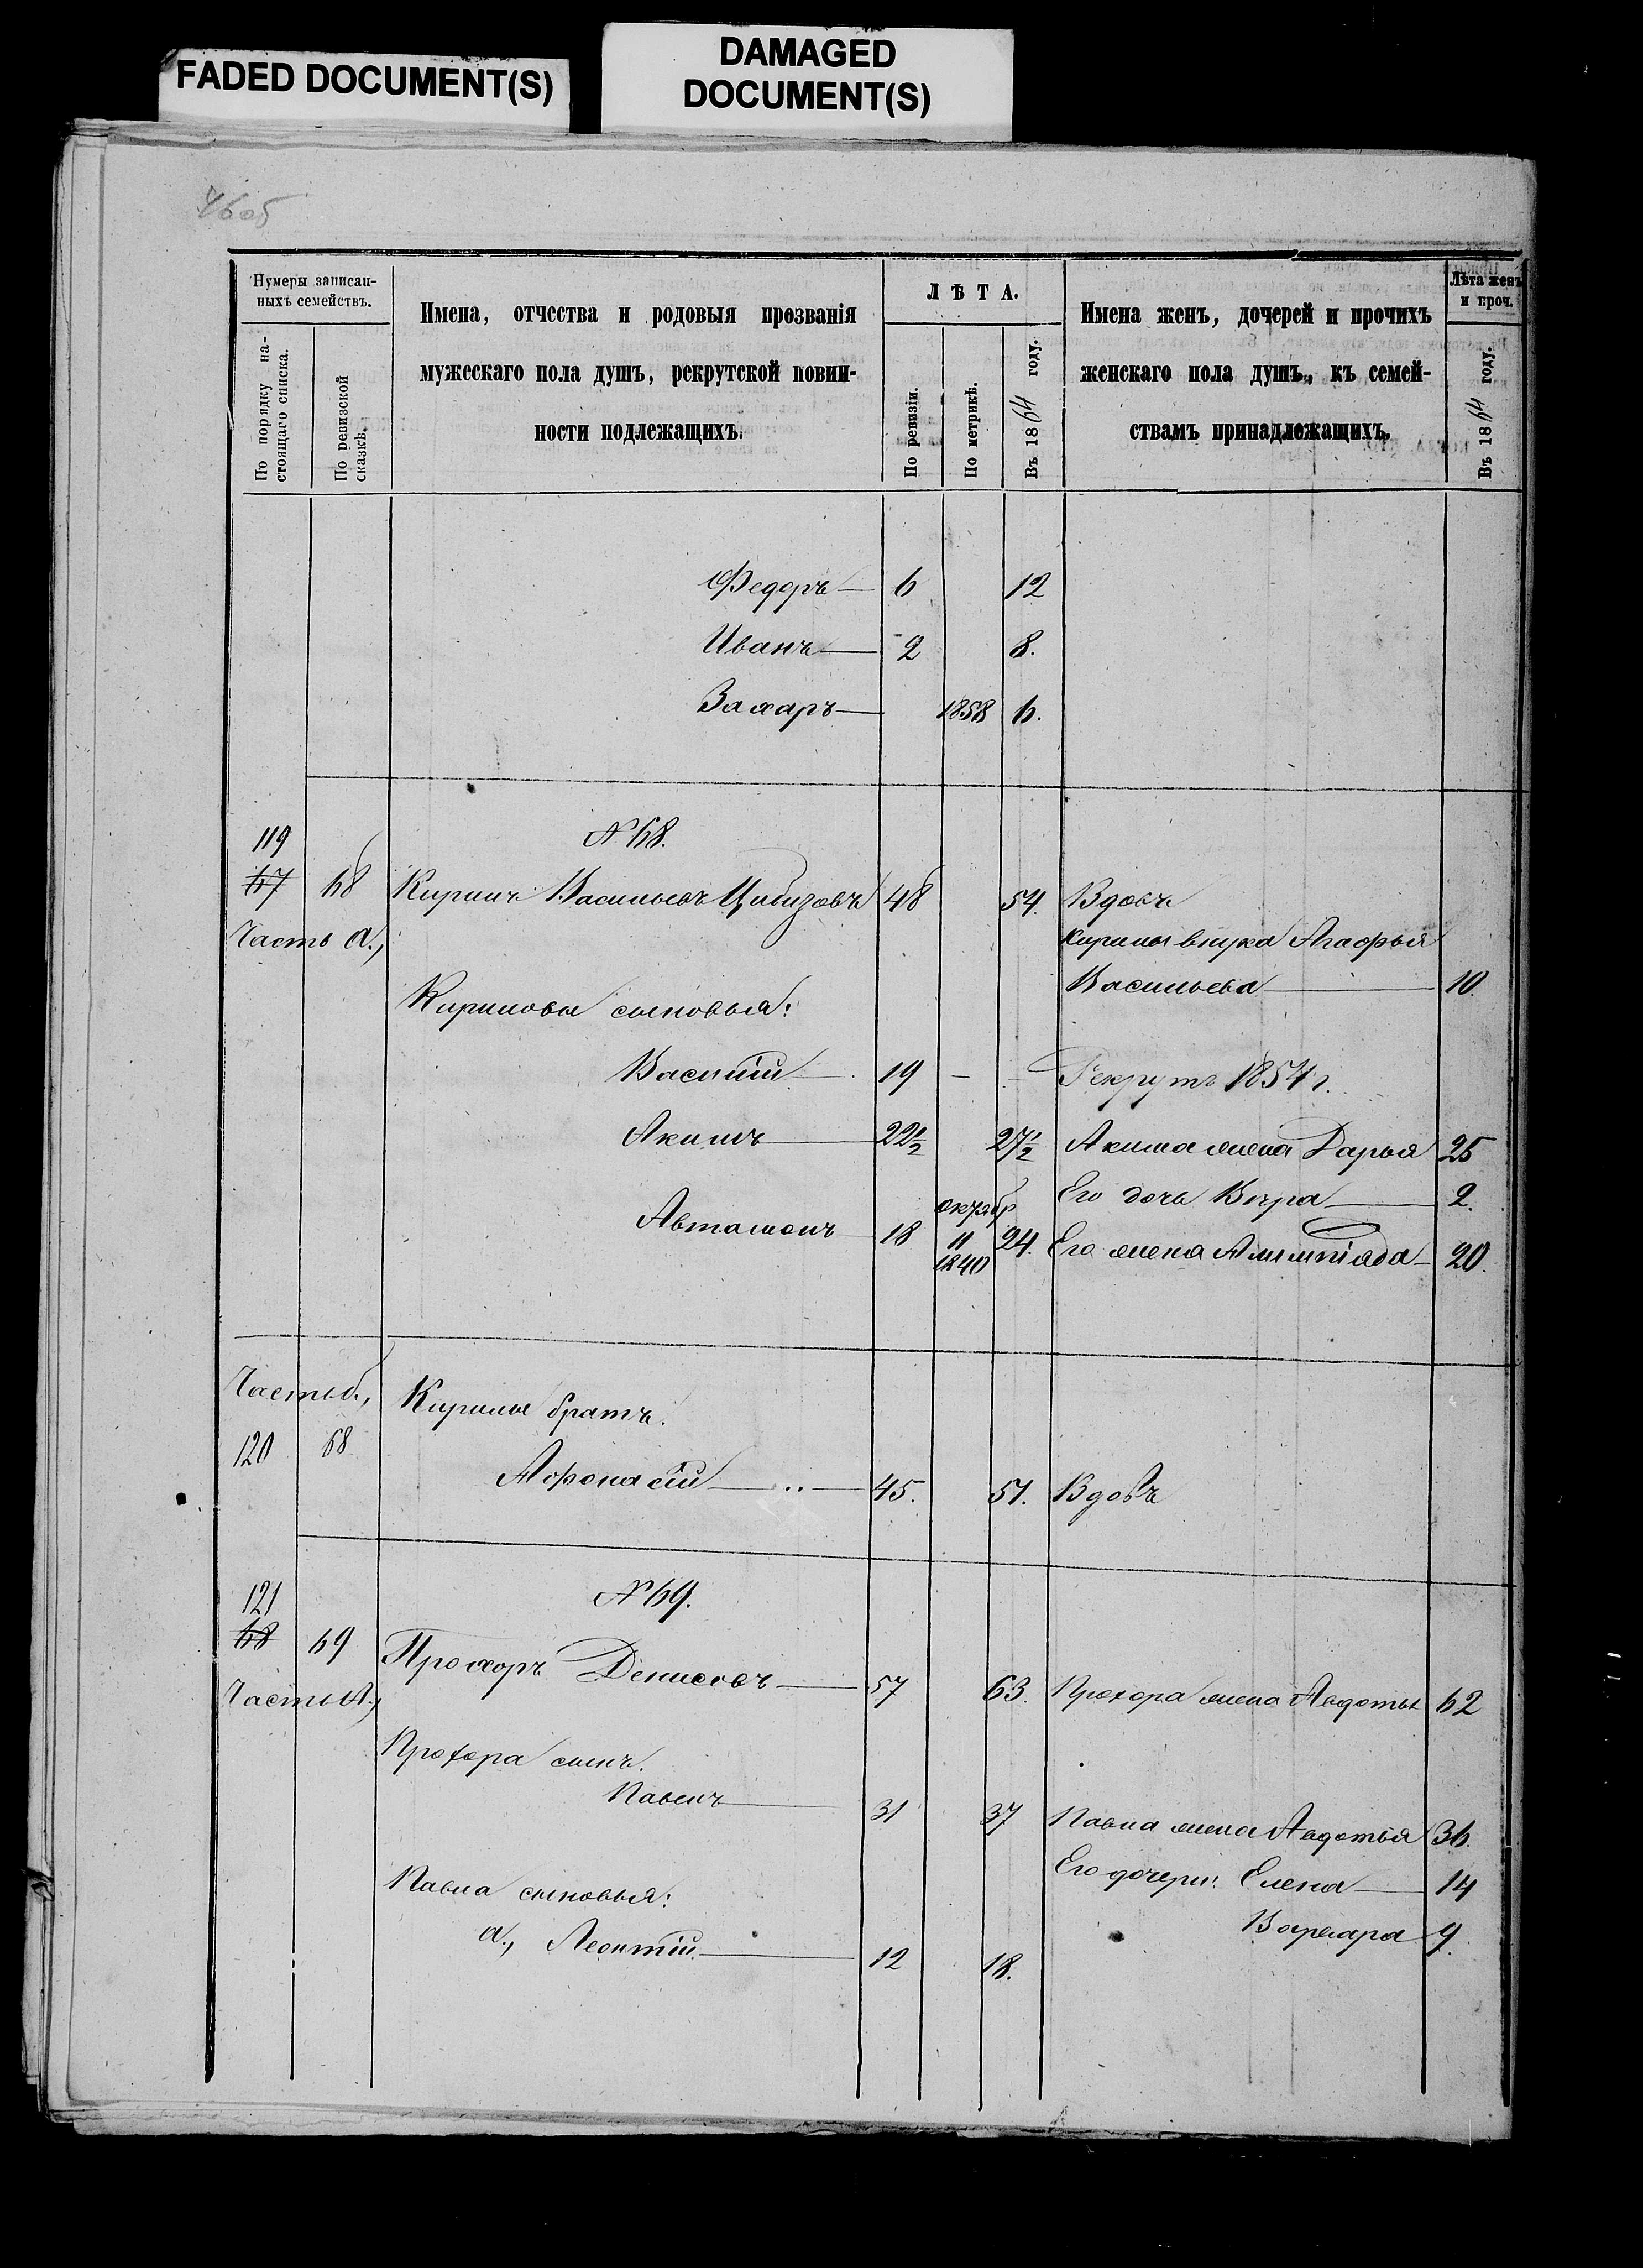 FADED DOCUMENT(S)
DAMAGED
DOCUMENT(S)
4605
Нумеры записан-
ныхъ семействъ.
По порядку на-
стоящаго списка.
По ревизской
сказкѣ.
Имена, отчества и родовыя прозванія
мужескаго пола душъ, рекрутской повин-
ности подлежащихъ.
ЛѢТА.
По ревизіи.
По метрикѣ.
Въ 1864 году.
Имена женъ, дочерей и прочихъ
женскаго пола душъ, къ семей-
ствамъ принадлежащихъ.
Лѣта женъ
и проч.
Въ 1864 году.
Федоръ — 6 12
Иванъ — 2 8.
Захаръ — 1858 6.
119 № 68.
67 68 Кирилъ Васильевъ Цибизовъ 48 54. Вдовъ
Часть а., Кирилы внука Агафья
Васильева — 10.
Кириловы сыновья:
Василій — 19 — — Рекрутъ 1854 г.
Акимъ — 22½ 27½ Акима жена Дарья 25
Его дочь Вѣра — 2.
Автамонъ 18 октябр 11 1840 24. Его жена Алимпіада — 20.
Часть б., Кирилы братъ.
120 68
Афонасій — 45. 51. Вдовъ
121 № 69.
68 69 Прохоръ Денисовъ — 57 63. Прохора жена Авдотья 62
Часть а.,
Прохора сынъ.
Павелъ — 31 37 Павла жена Авдотья 36.
Его дочери: Елена — 14
Павла сыновья:
Варвара 9.
а., Леонтій — 12 18.